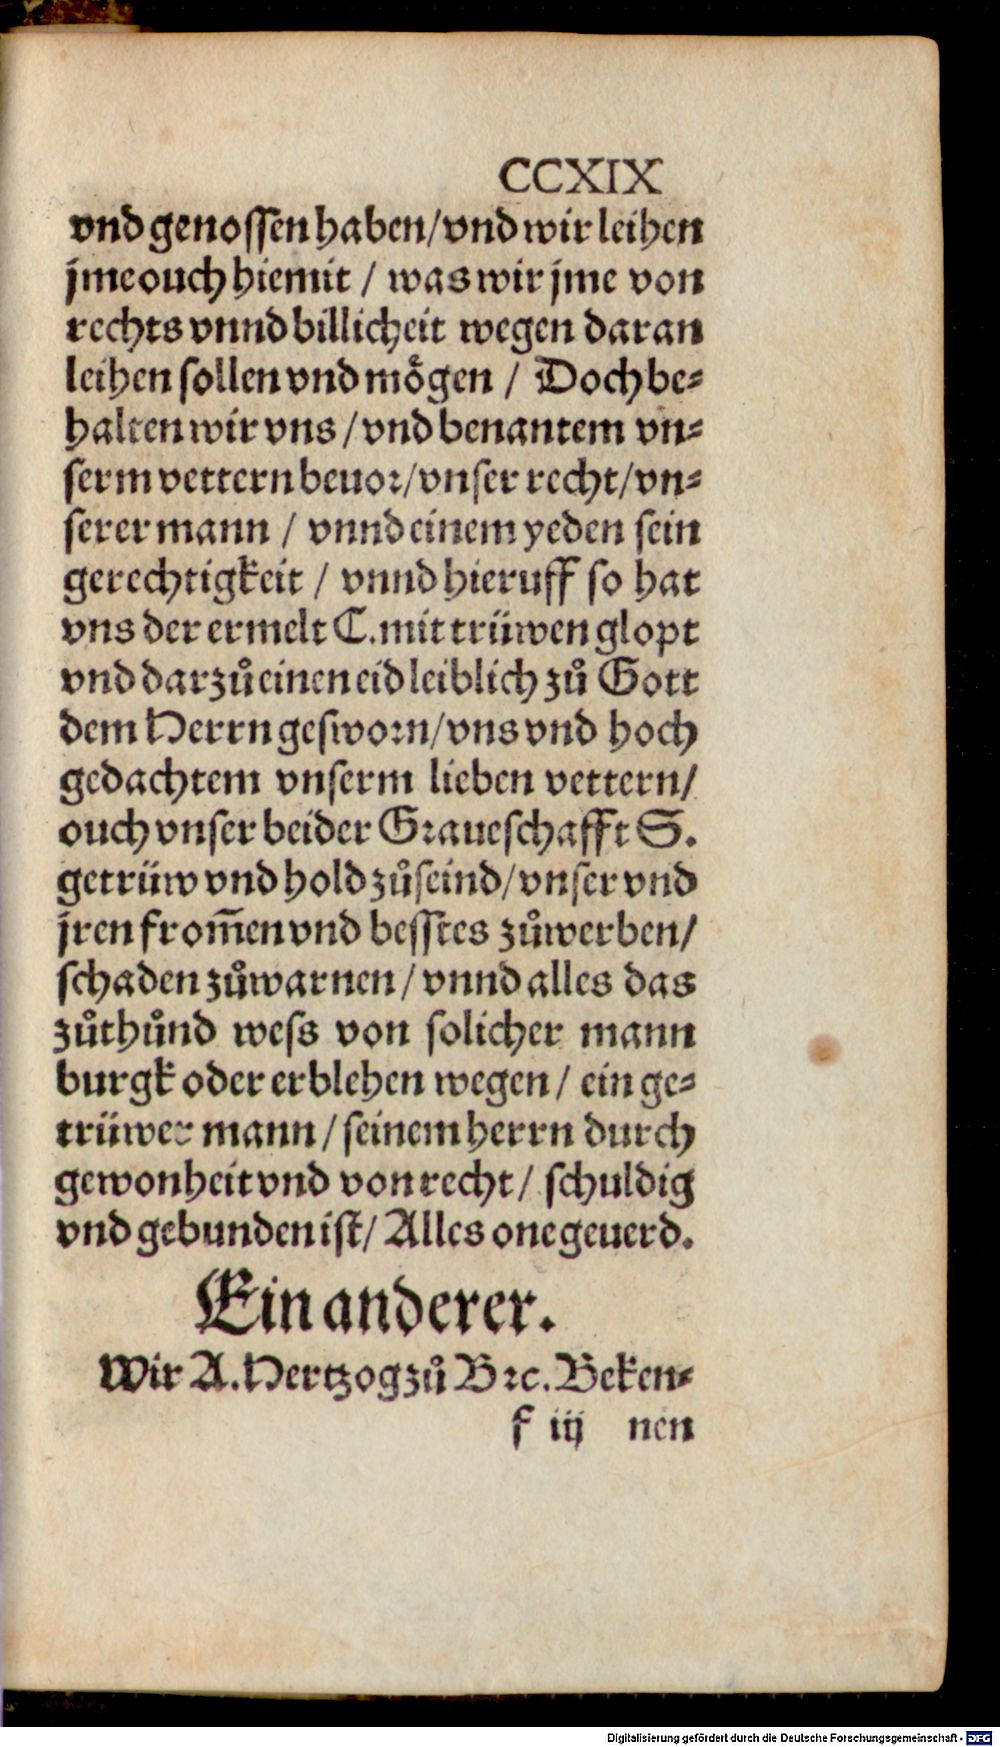 CCXIX
vnd genossen haben/vnd wir leihen
jme ouch hiemit / was wir jme von
rechts vnnd billicheit wegen daran
leihen sollen vnd mögen / Doch be⸗
halten wir vns /vnd benantem vn⸗
serm vettern beuor/vnser recht/vn⸗
serer mann / vnnd einem yeden sein
gerechtigkeit / vnnd hieruff so hat
vns der ermelt C.mit trüwen glopt
vnd darzuͦ einen eid leiblich zuͦ Gott
dem Herrn gesworn/vns vnd hoch
gedachtem vnserm lieben vettern/
ouch vnser beider Graueschafft S.
getrüw vnd hold zuͦseind/vnser vnd
jren from̄en vnd besstes zuͦwerben/
schaden zuͦwarnen / vnnd alles das
zuͦthuͦnd wess von solicher mann
burgk oder erblehen wegen / ein ge⸗
trüwer mann / seinem herrn durch
gewonheit vnd von recht / schuldig
vnd gebunden ist/ Alles one geuerd.
Ein anderer.
Wir A. Hertzog zuͦ B ꝛc. Beken⸗
f iij nen
Digitalisierung gefördert durch die Deutsche Forschungsgemeinschaft - DFG